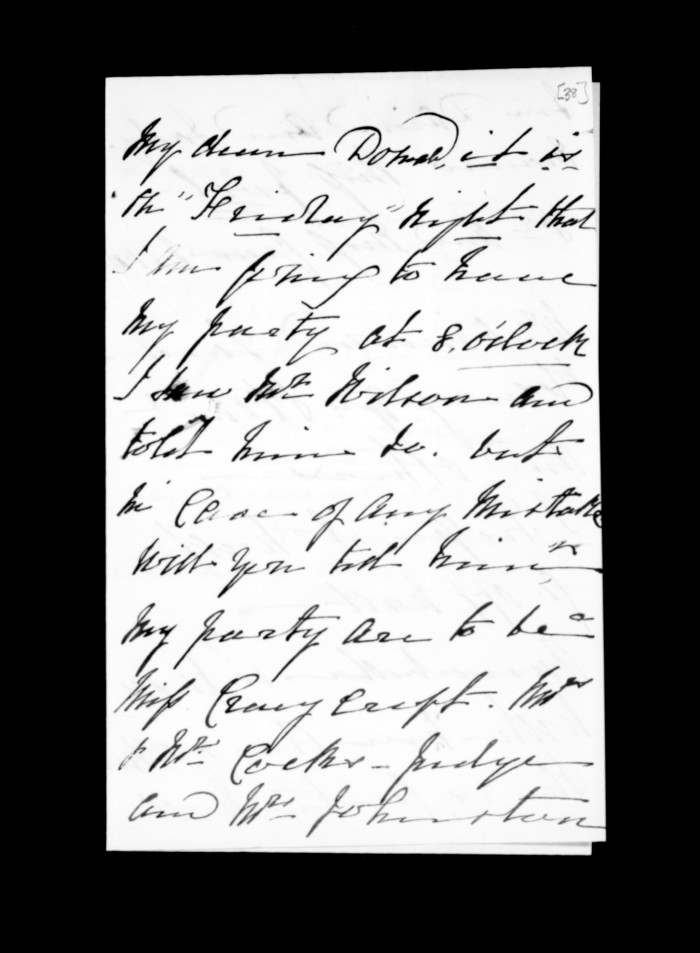 [38]
My dear Donald, it is
the "Friday" night that
I am going to have
my party at 8, o'clock
I saw Mr Wilson and
told him so. but
in case of any mistake
will you tell him
My party are to be
Miss Craycroft. Mrs
& Mr Cocks - Judge
and Mrs Johnston